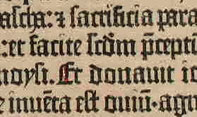 ascha: ⁊ sacrificia para
: et facite scd̄m p̄ceptū
moysi. Et donauit io
e inuēta est ouiū. agn